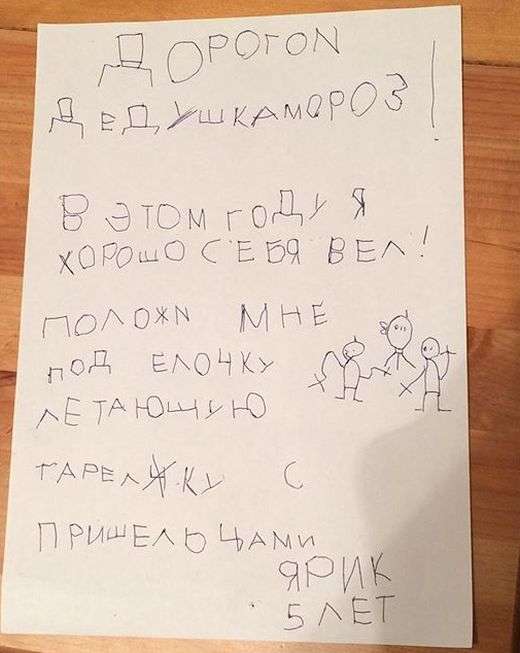 ДОРОГОN
ДЕДУШКАМОРОЗ!
В ЭТОМ ГОДУ Я
ХОРОШО СЕБЯ ВЕЛ!
ПОЛОЖN МНЕ
ПОД ЕЛОЧКУ
ЛЕТАЮЩУЮ
ТАРЕЛКУ С
ПРИШЕЛЬЦАМИ
ЯРИК
5 ЛЕТ